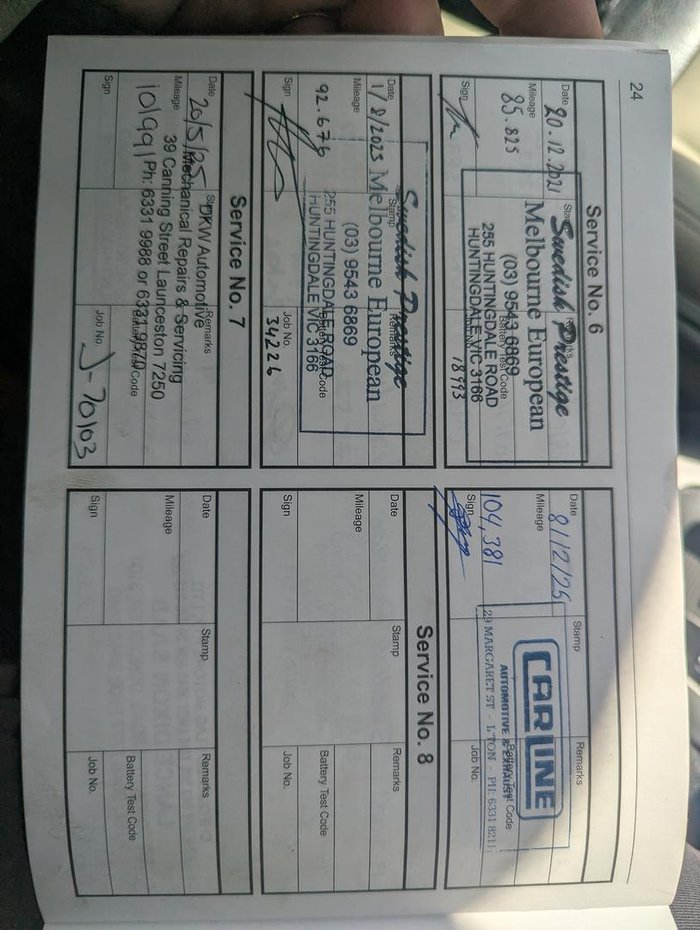 24
Service No. 6
Date 20.12.2021
Stamp
Remarks
Swedish Prestige
Melbourne European
Mileage
85.825
(03) 9543 6869
Battery Test Code
255 HUNTINGDALE ROAD
HUNTINGDALE VIC 3166
Sign
Job No.
18993
Date
1/8/2023
Stamp
Remarks
Swedish Prestige
Melbourne European
Mileage
92.676
(03) 9543 6869
Battery Test Code
255 HUNTINGDALE ROAD
HUNTINGDALE VIC 3166
Sign
Job No.
34226
Service No. 7
Date
20/5/25
Stamp
Remarks
DKW Automotive
Mechanical Repairs & Servicing
Mileage
101991
39 Canning Street Launceston 7250
Battery Test Code
Ph: 6331 9988 or 6331 9870
Sign
Job No.
J-70103
Date
8/12/25
Stamp
Remarks
CARLINE
AUTOMOTIVE & EXHAUST
Mileage
104,381
Battery Test Code
29 MARGARET ST - L'TON - PH: 6331 8211
Sign
Job No.
Service No. 8
Date
Stamp
Remarks
Mileage
Battery Test Code
Sign
Job No.
Date
Stamp
Remarks
Mileage
Battery Test Code
Sign
Job No.